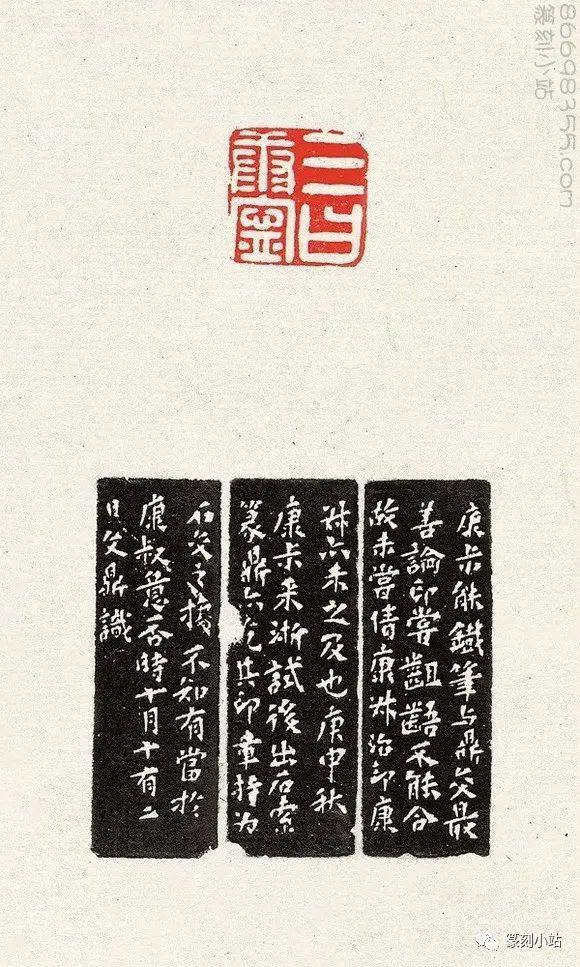 康尗能鐵筆与鼎交最
善論印嘗齟齬不能合
故未嘗倩康叔治印康
叔亦未之及也庚申秋
康尗来浙試後出石索
篆鼎亦乞其印章持为
石交之據不知有當於
康叔意否時十月十有二
日父鼎識
篆刻小站
86698355.com
篆刻小站